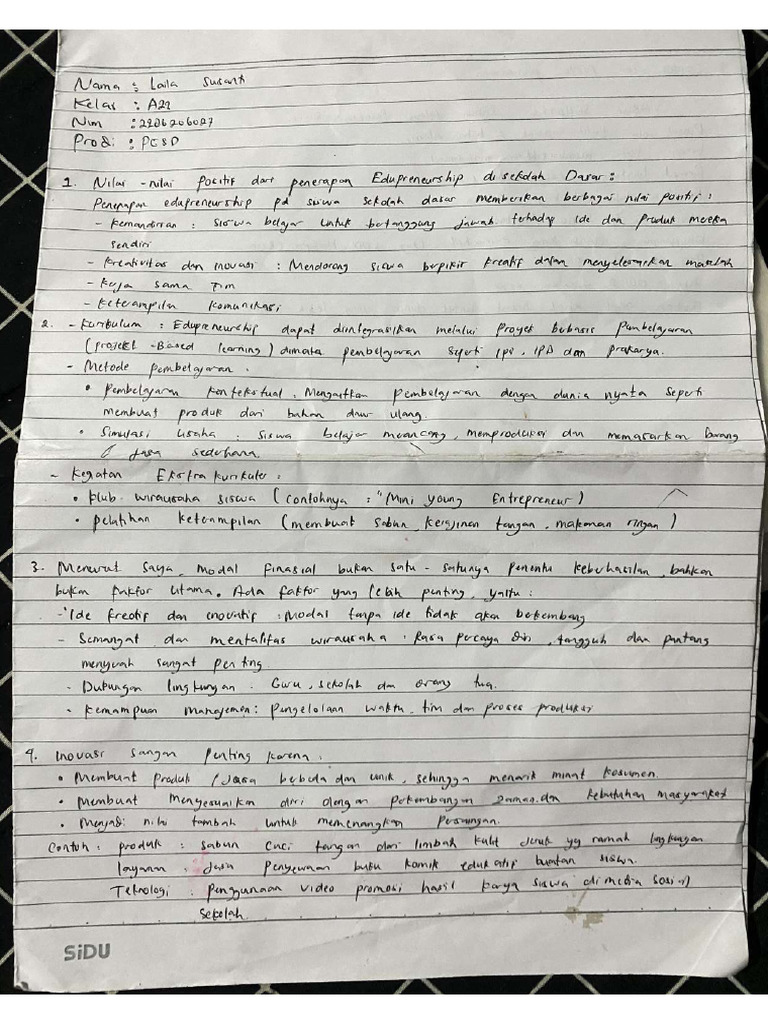 Nama : Laila Susanti
Kelas : A22
Nim : 2206206027
Prodi : PGSD
1. Nilai-nilai positif dari penerapan Edupreneurship di sekolah Dasar :
Penerapan edupreneurship pd siswa sekolah dasar memberikan berbagai nilai positif :
- Kemandirian : siswa belajar untuk bertanggung jawab terhadap ide dan produk mereka
sendiri
- Kreativitas dan inovasi : Mendorong siswa berpikir kreatif dalam menyelesaikan masalah
- Kerja sama Tim
- Keterampilan komunikasi
2. - Kurikulum : Edupreneurship dapat diintegrasikan melalui Proyek berbasis Pembelajaran
(project-Based learning) dimata pembelajaran seperti ips, IPA dan prakarya.
- Metode pembelajaran.
• Pembelajaran kontekstual : Mengaitkan pembelajaran dengan dunia nyata seperti
membuat produk dari bahan daur ulang.
• Simulasi Usaha : siswa belajar merancang, memproduksi dan memasarkan barang
/ jasa sederhana.
- Kegiatan Ekstrakurikuler :
• Klub wirausaha siswa (contohnya : "Mini young Entrepreneur)
• pelatihan keterampilan (membuat sabun, kerajinan tangan, makanan ringan)
3. Menurut saya, modal finasial bukan satu-satunya penentu keberhasilan, bahkan
bukan faktor utama. Ada faktor yang lebih penting, yaitu :
- Ide kreatif dan inovatif : Modal tanpa ide tidak akan berkembang
- Semangat dan mentalitas wirausaha : Rasa percaya diri, tangguh dan pantang
menyerah sangat penting.
- Dukungan lingkungan : Guru, sekolah dan orang tua.
- Kemampuan manajemen : pengelolaan waktu, tim dan proses produksi
4. Inovasi sangan penting karena :
• Membuat produk / jasa berbeda dan unik, sehingga menarik minat kosumen.
• Membuat menyesuaikan diri dengan perkembangan zaman dan kebutuhan masyarakat
• Menjadi nilai tambah untuk memenangkan persaingan.
Contoh : produk : sabun cuci tangan dari limbah kulit jeruk yg ramah lingkungan
layanan : Jasa penyewaan buku komik edukatif buatan siswa.
Teknologi : penggunaan video promosi hasil karya siswa di media sosial
sekolah.
SiDU